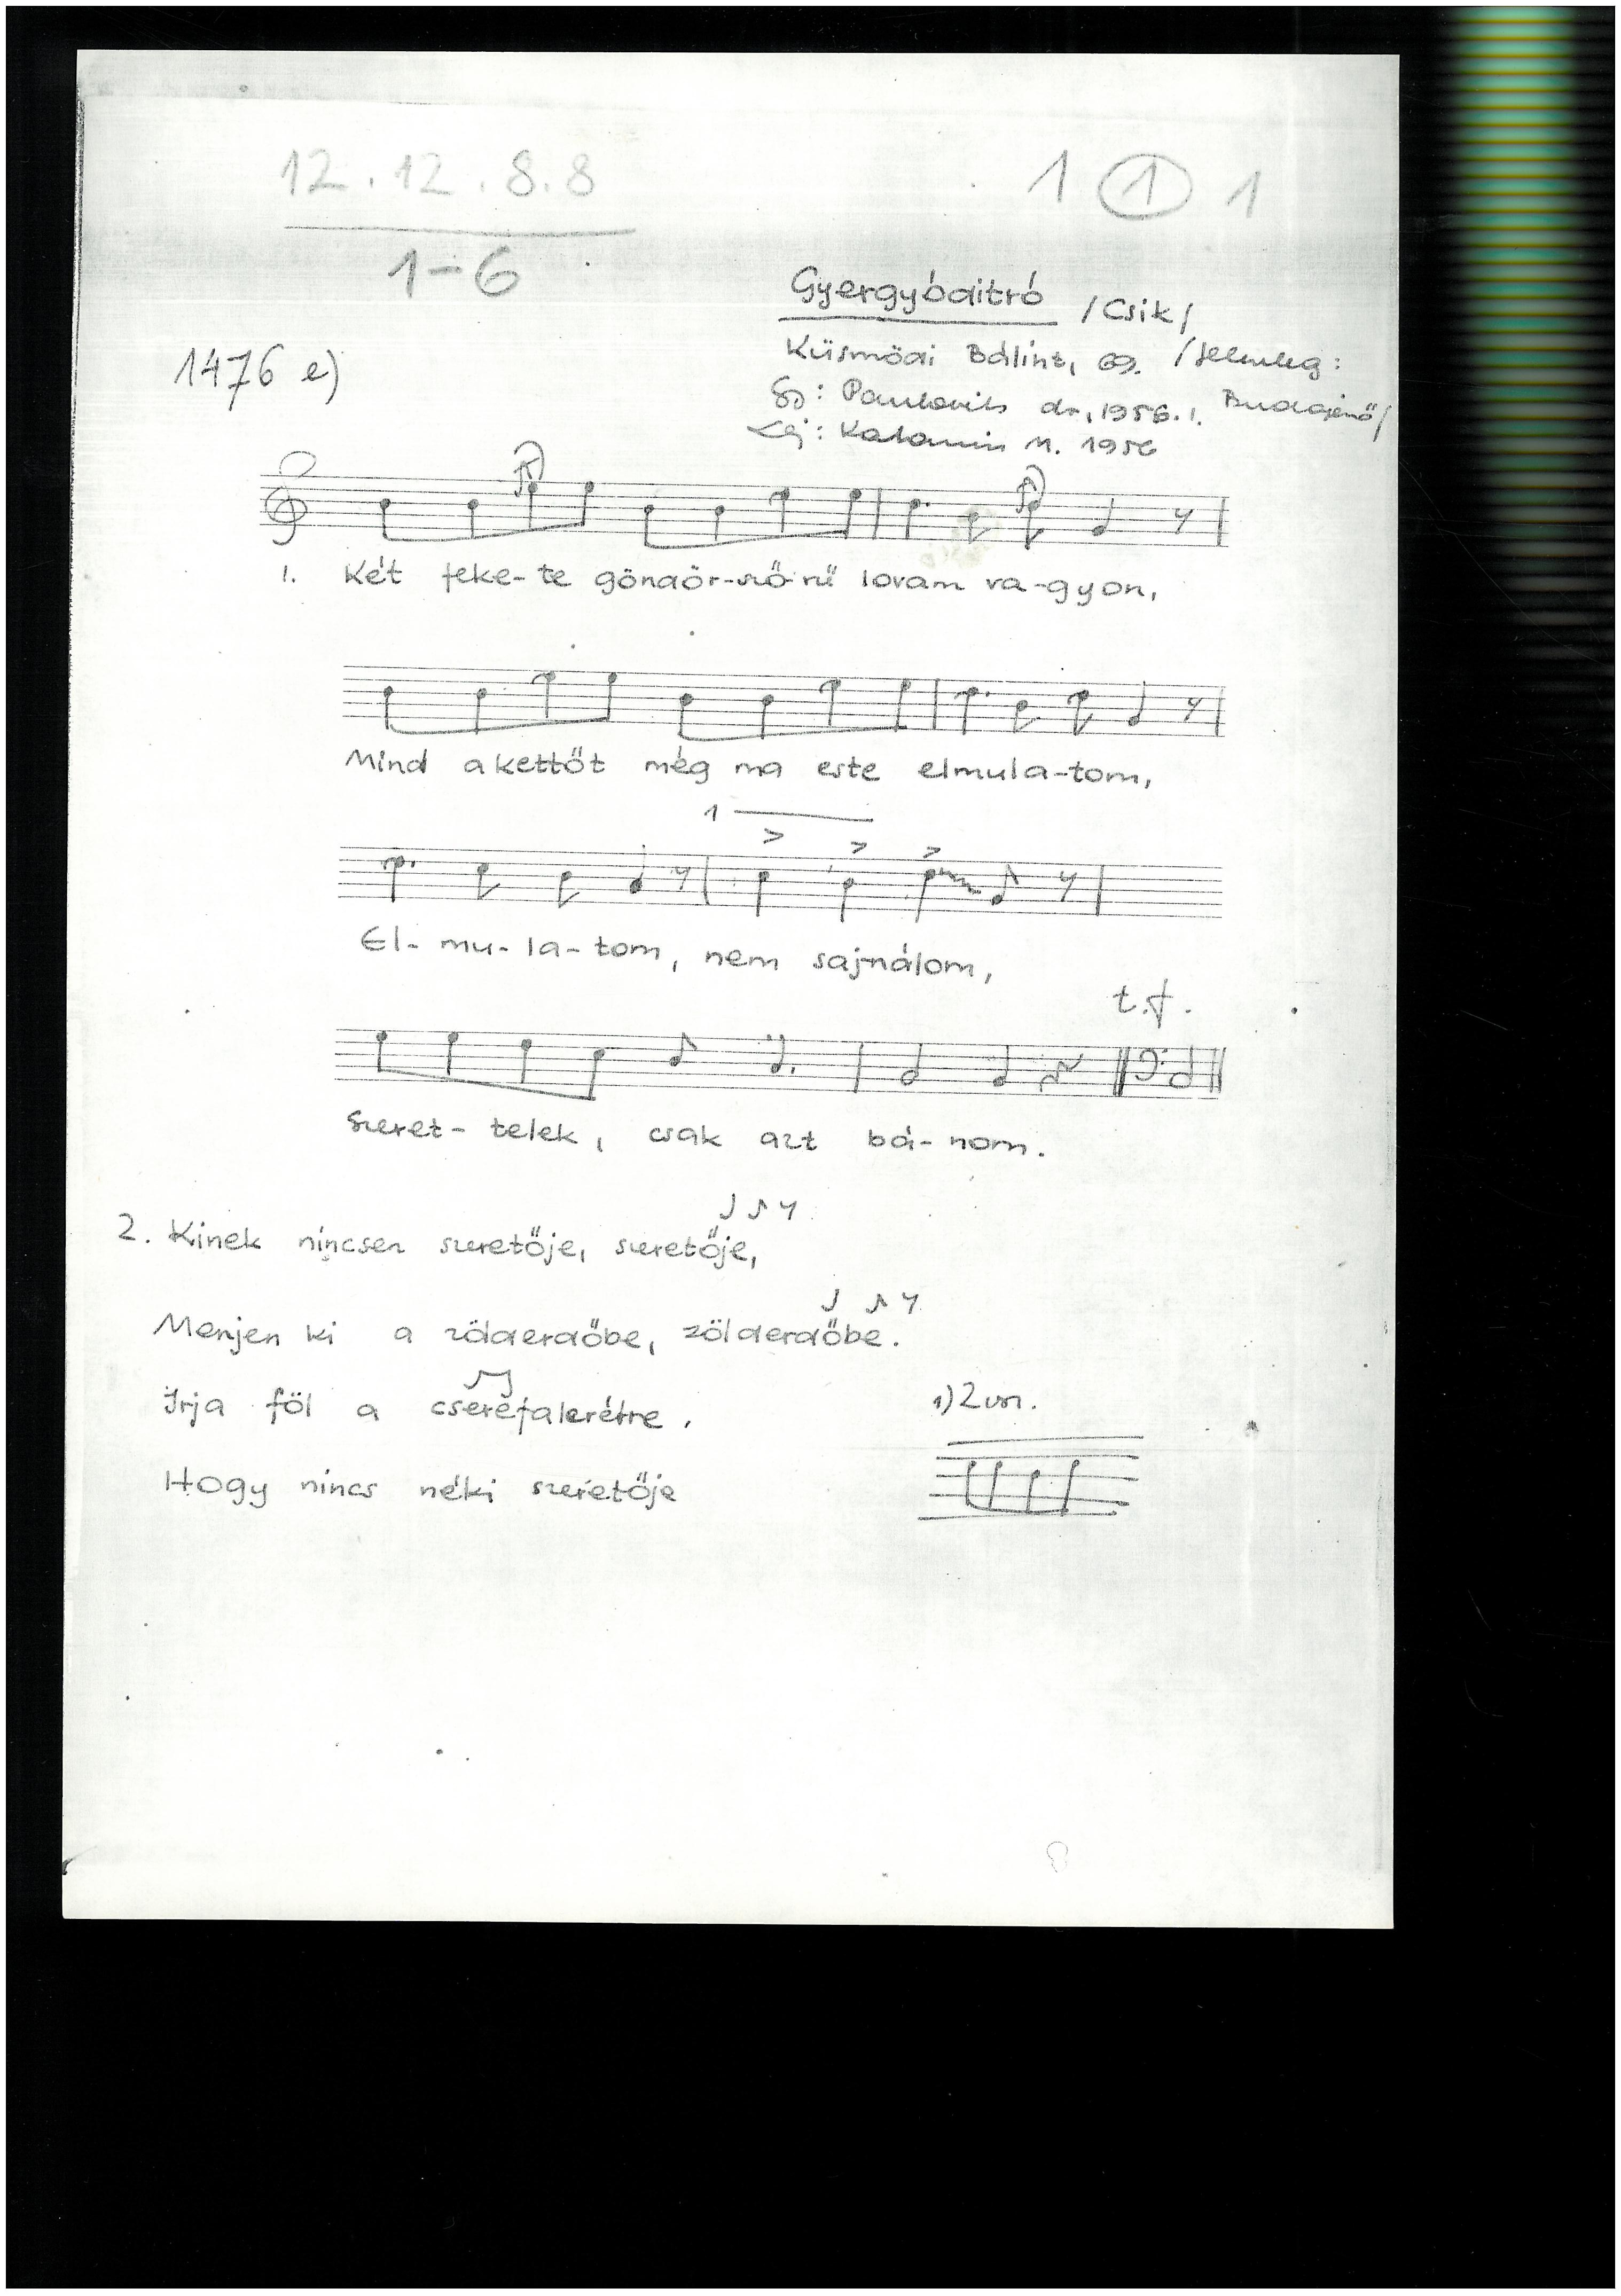 12.12.8.8
1 1 1
1-6
Gyergyóditró /Csik/
1476 e)
Küsmödi Bálint, 69. /Jelenleg:
Gy: Paulovits dr, 1956.1. Budajenő/
Lej: Katanics M. 1956
1. Két feke-te göndör-sző-rű lovam va-gyon,
Mind a kettőt még ma este elmula-tom,
1
El-mu-la-tom, nem saj-nálom,
t.f.
Szeret-telek, csak azt bá-nom.
2. Kinek nincsen szeretője, szeretője,
Menjen ki a zölderdőbe, zölderdőbe.
Irja föl a cserefalevélre,
1) 2 vsz.
Hogy nincs néki szeretője